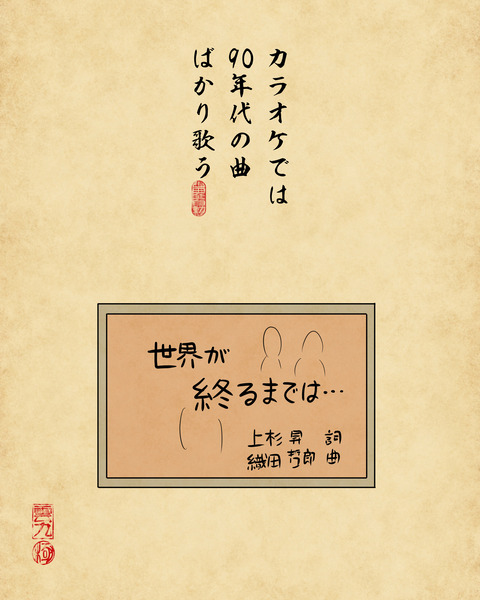 カラオケでは
90年代の曲
ばかり歌う
世界が
終るまでは…
上杉 昇 詞
織田 哲郎 曲